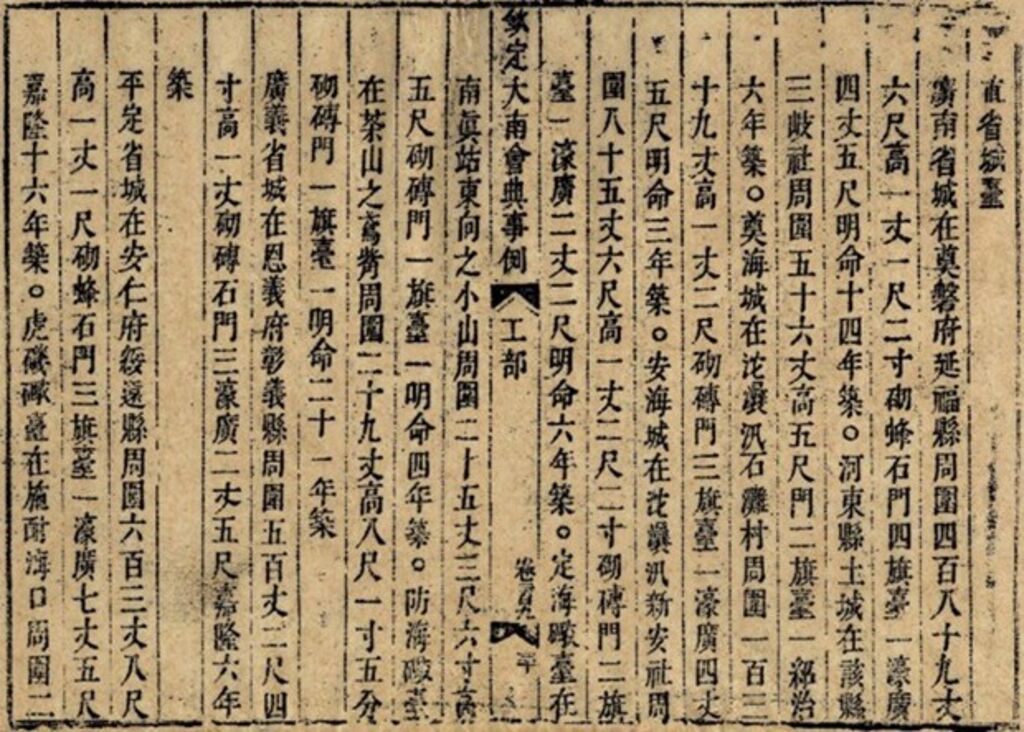 直省城臺
廣南省城在奠磐府延福縣周圍四百八十九丈
六尺高一丈一尺二寸砌蜂石門四旗臺一濠廣
四丈五尺明命十四年築○河東縣土城在該縣
三岐社周圍五十六丈高五尺門二旗臺一紹治
六年築○奠海城在沱㶞汛石灘村周圍一百三
十九丈高一丈二尺砌磚門三旗臺一濠廣四丈
五尺明命三年築○安海城在沱㶞汛新安社周
圍八十五丈六尺高一丈二尺二寸砌磚門二旗
臺一濠廣二丈二尺明命六年築○定海礮臺在
欽定大南會典事例 工部 卷二百九
南眞姑東向之小山周圍二十五丈三尺六寸高
五尺砌磚門一旗臺一明命四年築○防海礮臺
在茶山之鳶嘴周圍二十九丈高八尺一寸五分
砌磚門一旗臺一明命二十一年築
廣義省城在思義府彰義縣周圍五百丈二尺四
寸高一丈砌磚石門三濠廣二丈五尺嘉隆六年
築
平定省城在安仁府綏遠縣周圍六百三丈八尺
高一丈一尺砌蜂石門三旗臺一濠廣七丈五尺
嘉隆十六年築○虎磯礮臺在施耐海口周圍二